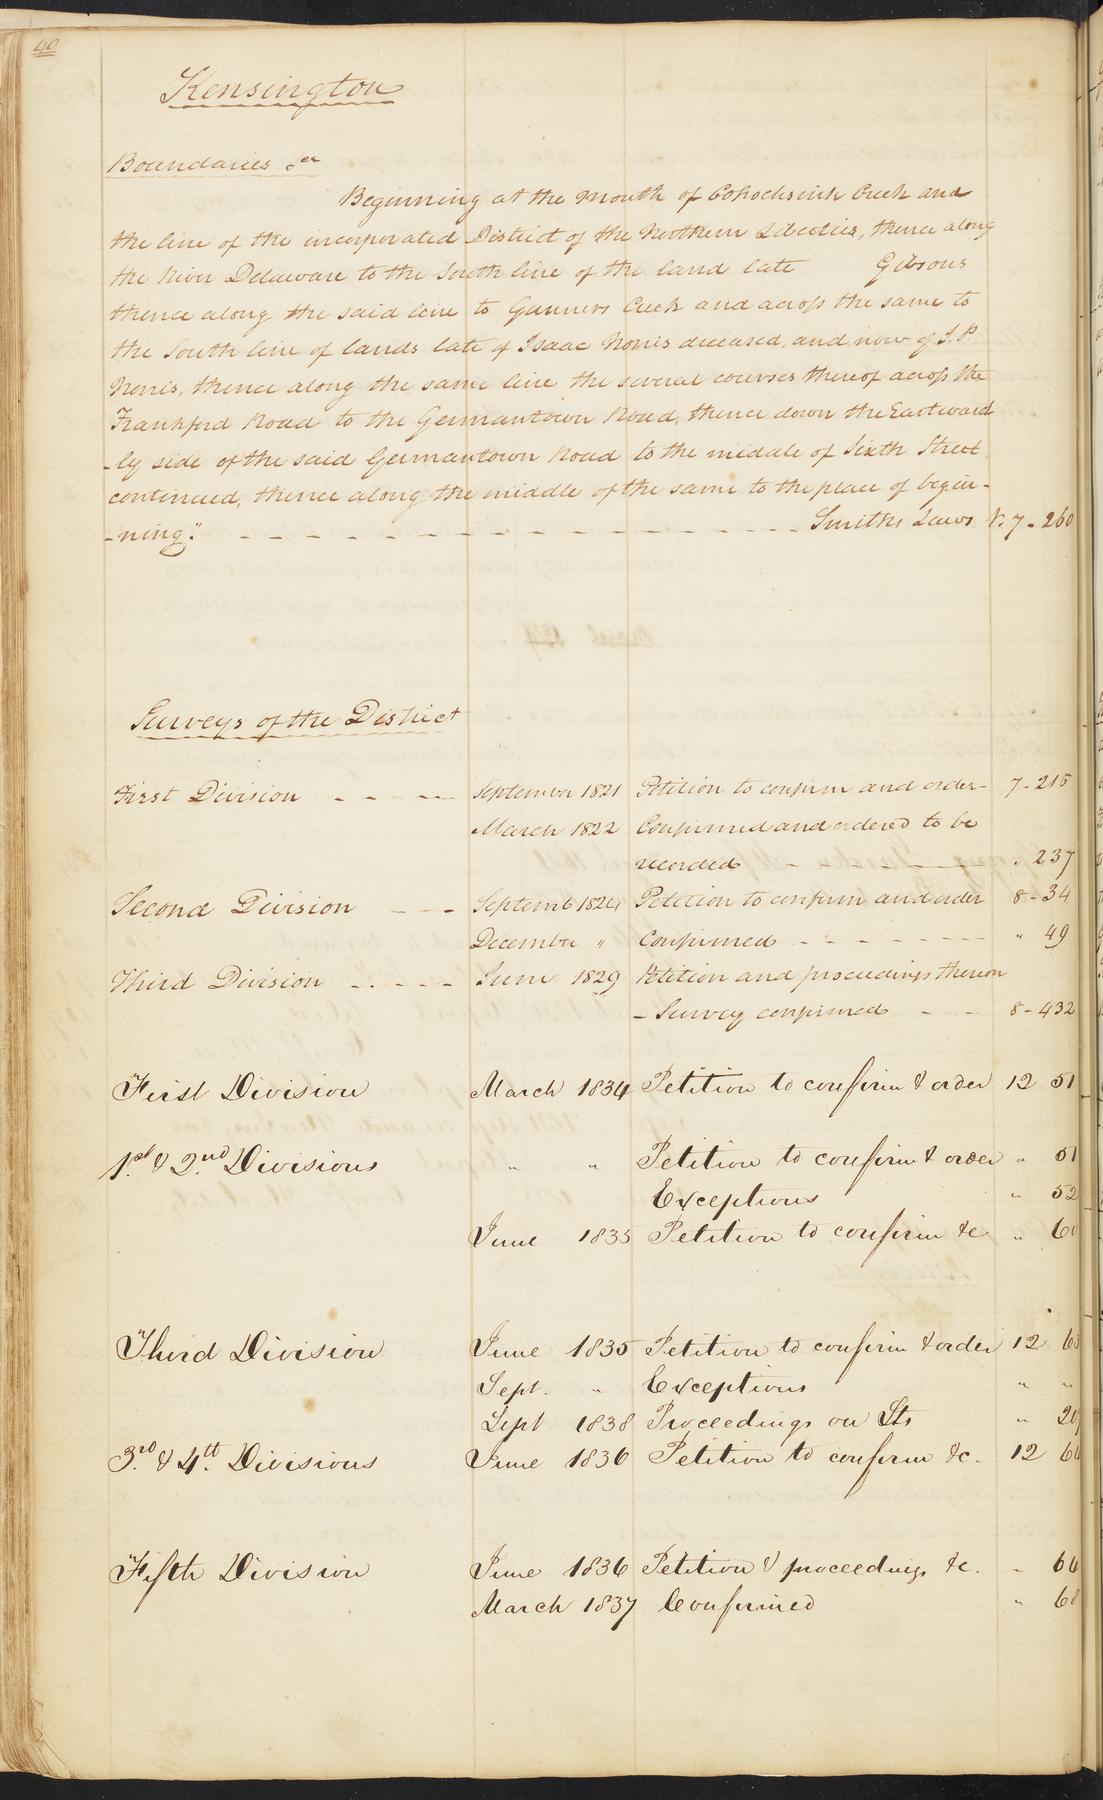 40
Kensington
Boundaries &c
Beginning at the mouth of Cohocksink Creek and
the line of the incorporated District of the Northern Liberties, thence along
the River Delaware to the South line of the land late Gibsons
thence along the said line to Gunners Creek and across the same to
the South line of lands late of Isaac Norris deceased, and now of J. P.
Norris, thence along the same line the several courses thereof across the
Frankford Road to the Germantown Road, thence down the Eastward
-ly side of the said Germantown Road to the middle of Sixth Street
continued, thence along the middle of the same to the place of begin-
-ning." Smiths Laws V. 7 - 260
Surveys of the District
First Division - - - - September 1821 Petition to confirm and order - 7 - 215
March 1822 Confirmed and ordered to be
recorded " 237
Second Division - - - Septemb 1824 Petition to confirm and order 8 - 34
December " Confirmed - - - - - - - " 49
Third Division - - - - - June 1829 Petition and proceedings thereon
- Survey confirmed - - - 8 - 432
First Division March 1834 Petition to confirm & order 12 51
1st & 2nd Divisions " " Petition to confirm & order " 51
Exceptions " 52
June 1835 Petition to confirm &c "
Third Division June 1835 Petition to confirm & order 12
Sept. " Exceptions " "
Sept 1838 Proceedings on Sts "
3rd & 4th Divisions June 1836 Petition to confirm &c. 12
Fifth Division June 1836 Petition & proceedings &c. " 64
March 1837 Confirmed " 68